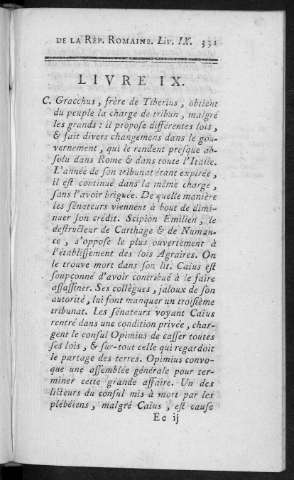 DE LA RÉP. ROMAINE. LIV. IX. 331
LIVRE IX.
C. Gracchus, frère de Tiberius, obtient
du peuple la charge de tribun, malgré
les grands : il propose différentes lois,
& fait divers changemens dans le gou-
vernement, qui le rendent presque ab-
solu dans Rome & dans toute l'Italie.
L'année de son tribunat étant expirée,
il est continué dans la même charge,
sans l'avoir briguée. De quelle manière
les sénateurs viennent à bout de dimi-
nuer son crédit. Scipion Emilien, le
destructeur de Carthage & de Numan-
ce, s'oppose le plus ouvertement à
l'établissement des lois Agraires. On
le trouve mort dans son lit. Caïus est
soupçonné d'avoir contribué à le faire
assassiner. Ses collègues, jaloux de son
autorité, lui font manquer un troisième
tribunat. Les sénateurs voyant Caïus
rentré dans une condition privée, char-
gent le consul Opimius de casser toutes
ses lois, & sur-tout celle qui regardoit
le partage des terres. Opimius convo-
que une assemblée générale pour ter-
miner cette grande affaire. Un des
licteurs du consul mis à mort par les
plébéiens, malgré Caïus, est cause
Ee ij